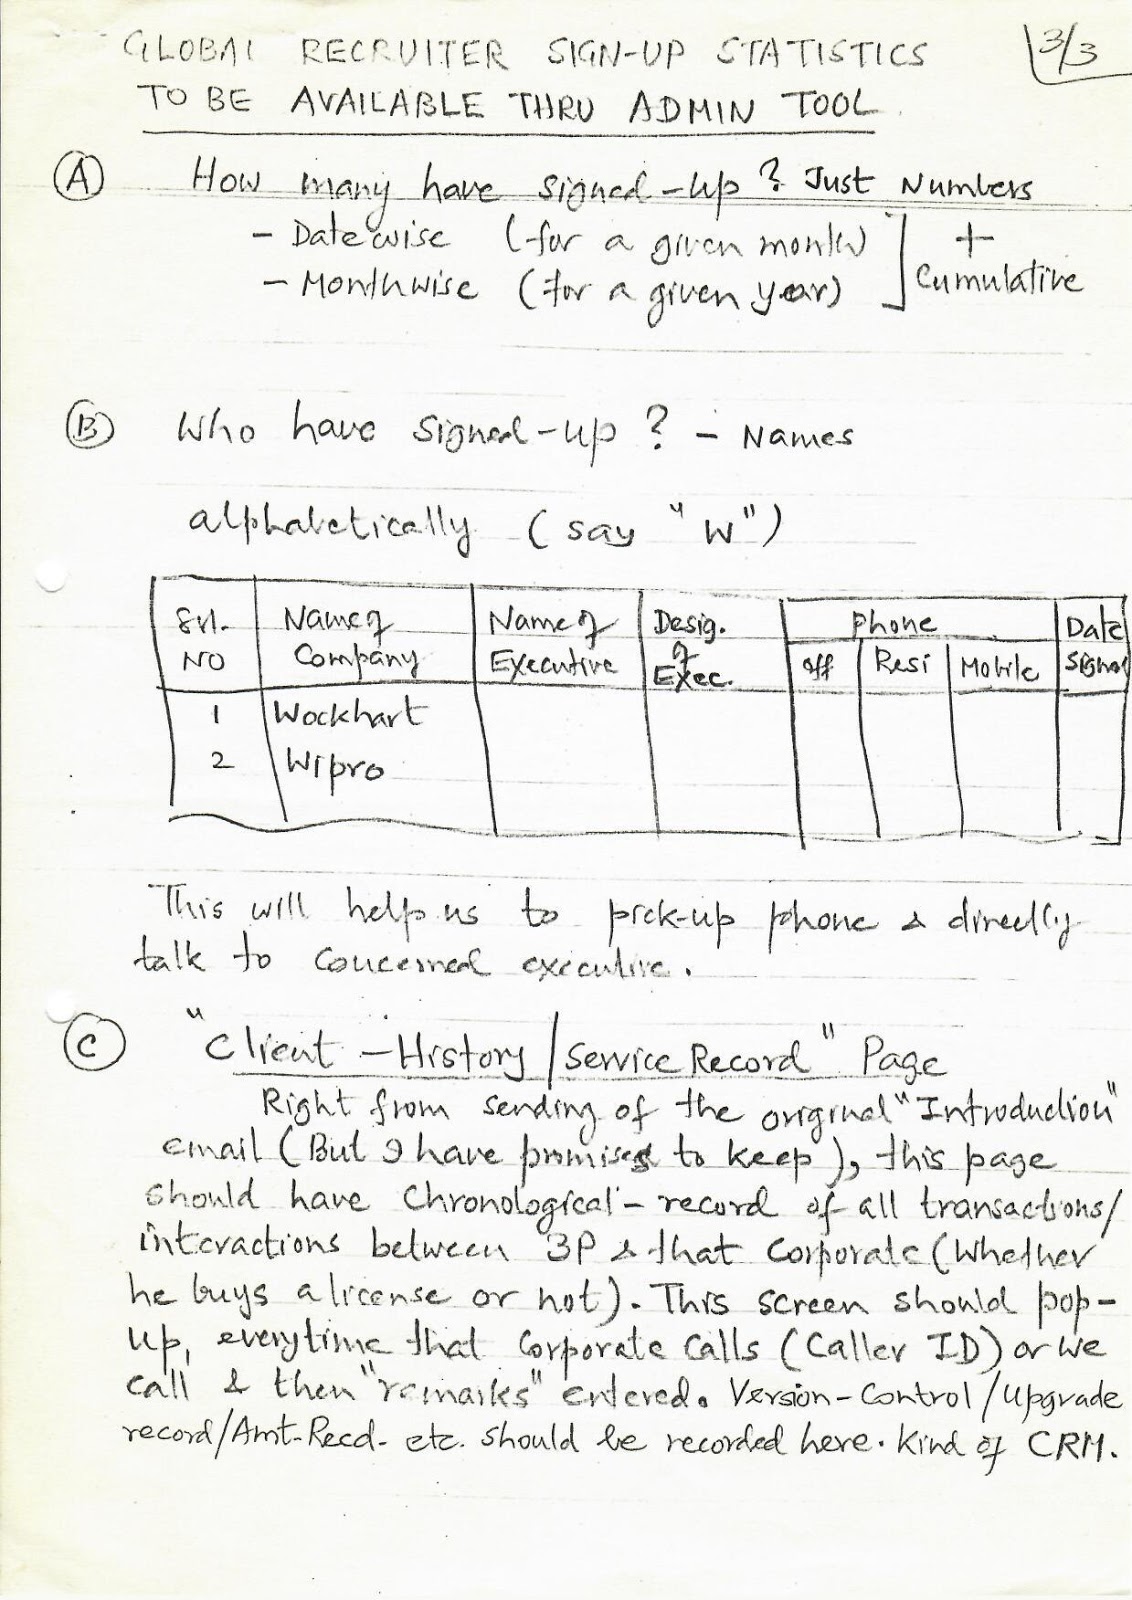 GLOBAL RECRUITER SIGN-UP STATISTICS 3/3
TO BE AVAILABLE THRU ADMIN TOOL.
(A) How many have signed-up? Just Numbers
- Datewise (for a given month) ] +
- Monthwise (for a given year) ] Cumulative
(B) Who have signed-up? - Names
alphabetically (say "W")
Srl. Name of Name of Desig. Phone Date
No Company Executive of Exec. off Resi Mobile Signed
1 Wockhart
2 Wipro
This will help us to pick-up phone & directly
talk to concerned executive.
(C) "Client-History/Service Record" Page
Right from sending of the original "Introduction"
email (But I have promises to keep), this page
should have Chronological-record of all transactions/
interactions between 3P & that Corporate (Whether
he buys a license or not). This screen should pop-
up, everytime that Corporate calls (Caller ID) or we
call & then "remarks" entered. Version-Control/Upgrade
record/Amt-Recd- etc. should be recorded here. Kind of CRM.